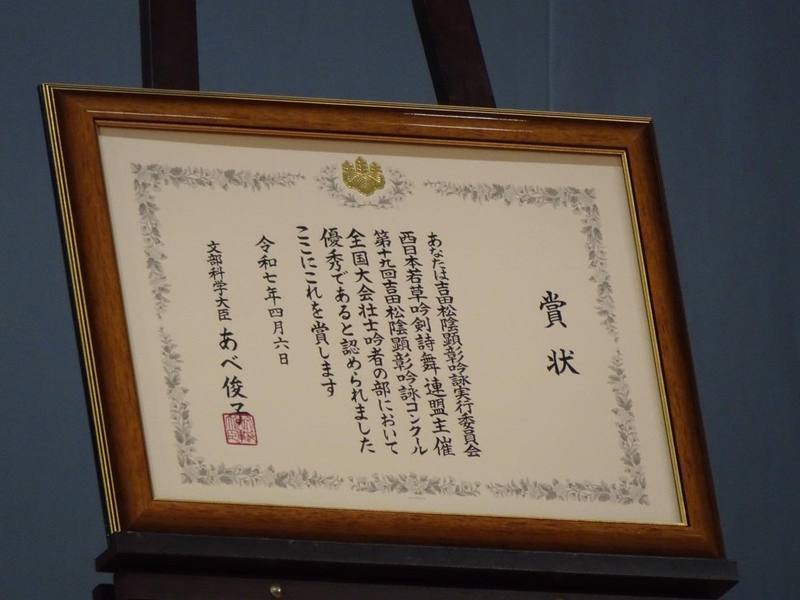 賞状
あなたは吉田松陰顕彰吟詠実行委員会
西日本若草吟剣詩舞連盟主催
第十九回吉田松陰顕彰吟詠コンクール
全国大会壮士吟者の部において
優秀であると認められました
ここにこれを賞します
令和七年四月六日
文部科学大臣 あべ俊子